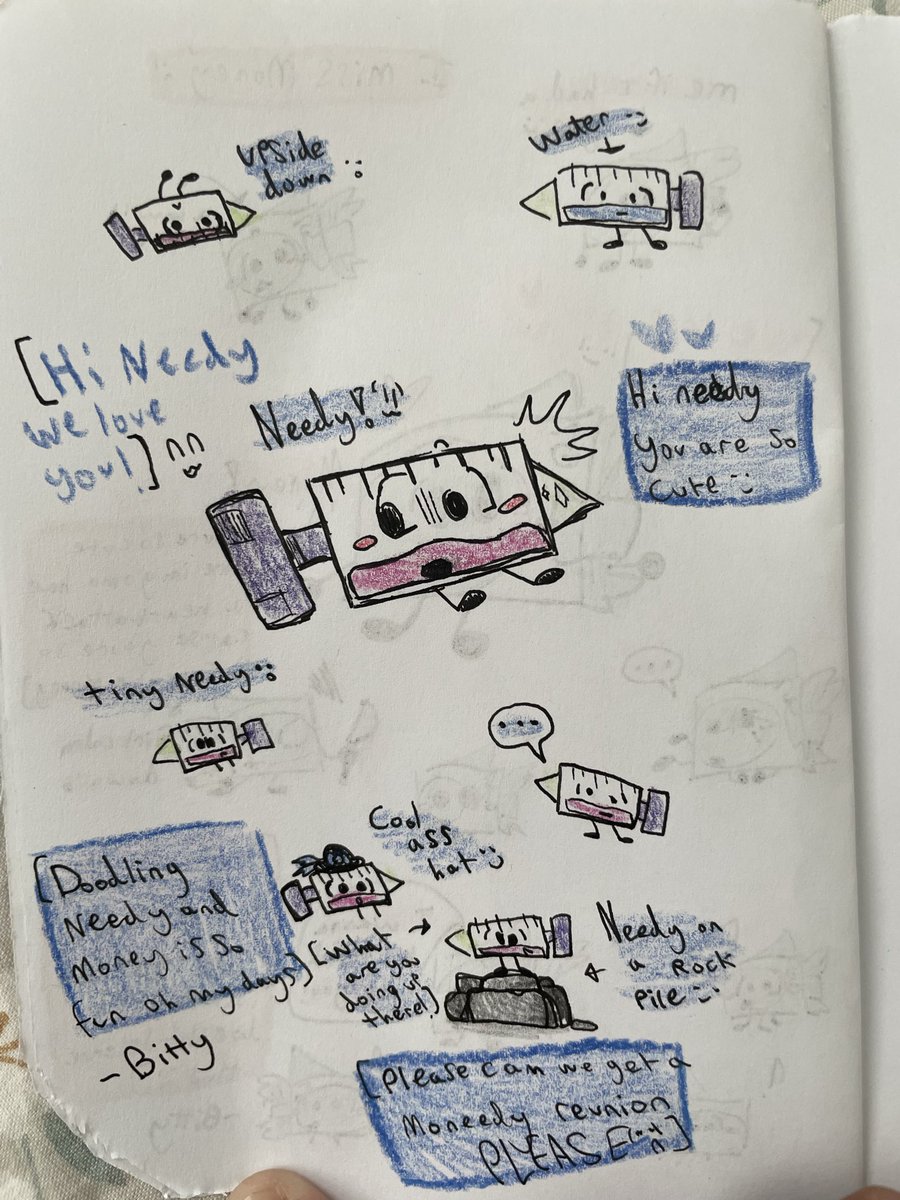 upside
down :;
water :;
[Hi Needy
we love
you!]
Needy!!!
Hi needy
you are so
cute :;
tiny Needy :;
...
Cool
ass
hat :;
[Doodling
Needy and
Money is so
fun oh my days]
-Bitty
[What
are you
doing up
there!]
Needy on
a Rock
pile :;
[please can we get a
Moneedy reunion
PLEASE]
I miss Money
me if I had a